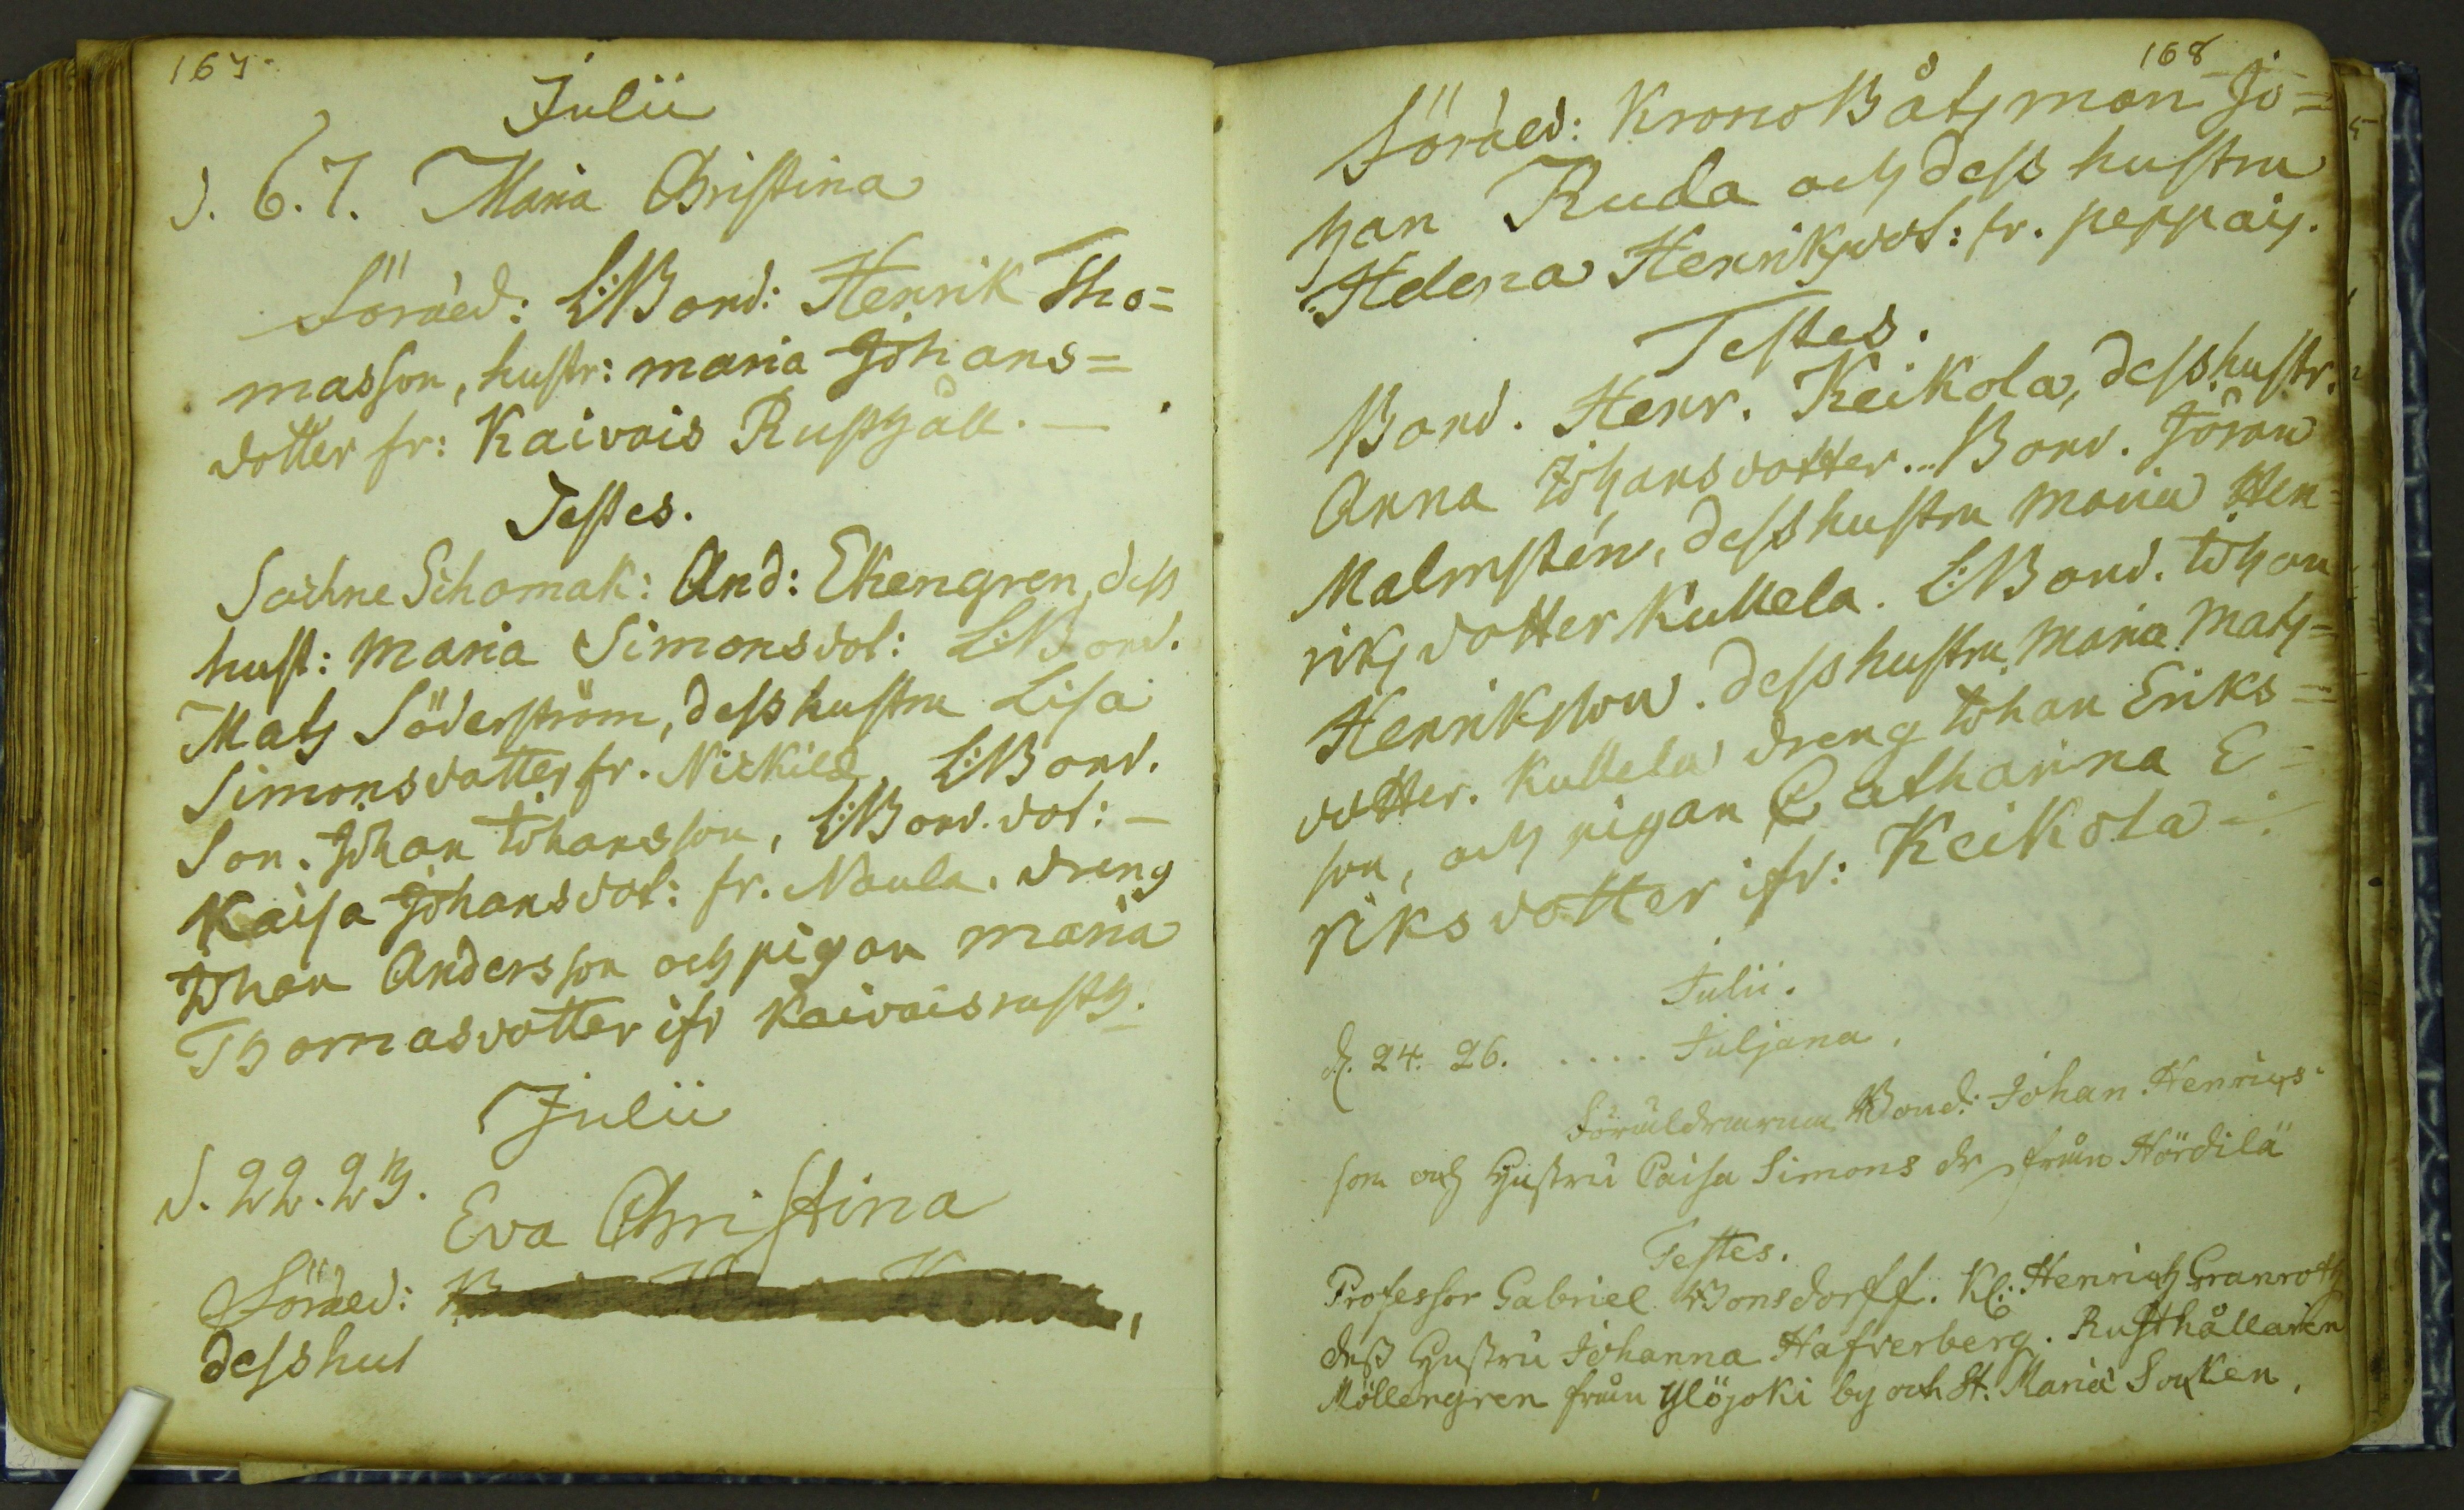 167.
Julii
d. 6. 7. Maria Christina
Föräld: L:Bond: Henrik Tho=
masson, hustr: maria Johans=
dotter fr: Kaivois Rusthåll. —
Testes.
Sochne Schomak: And: Ekengren, dess
hust: Maria Simonsdot: L:Bond.
Mats Söderström, desshustru Lisa
Simonsdotter fr. Nickild, L:Bond.
Son. Johan Johansson, L:Bond. dot: —
Kaisa Johansdot: fr. Naula. dreng
Johan Andersson och pigan maria
Thomasdotter ifr Kaivoisrusth.
Julii
d. 22. 23.
Eva Christina
Föräld:
desshus
168
Föräld: Krono Båtzman Jo=
han Ruda och dess hustru
Helena Henriksdot: fr. peppais.
Testes.
Bond. Henr. Keikola, desshustr.
Anna Johansdotter... Bond. Jöran
Malmstén, desshustru Maria Hen=
riksdotter Kullela. L:Bond. Johan
Henriksson. desshustru Maria Mats=
dotter. Kullela dreng Johan Eriks=
son, och pigan Catharina E=
riksdotter ifr: Keikola
Julii.
d. 24. 26. .... Juljana.
Föräldrarna Bond: Johan Henrics
son och Hustru Caisa Simons dr från Hördilä
Testes.
Professor Gabriel Bonsdorff. Kl: Henrich Granroth
dess Hustru Johanna Hafverberg. Rusthållaren
Möllengren från Ylöjoki by och St. Mariæ Socken.